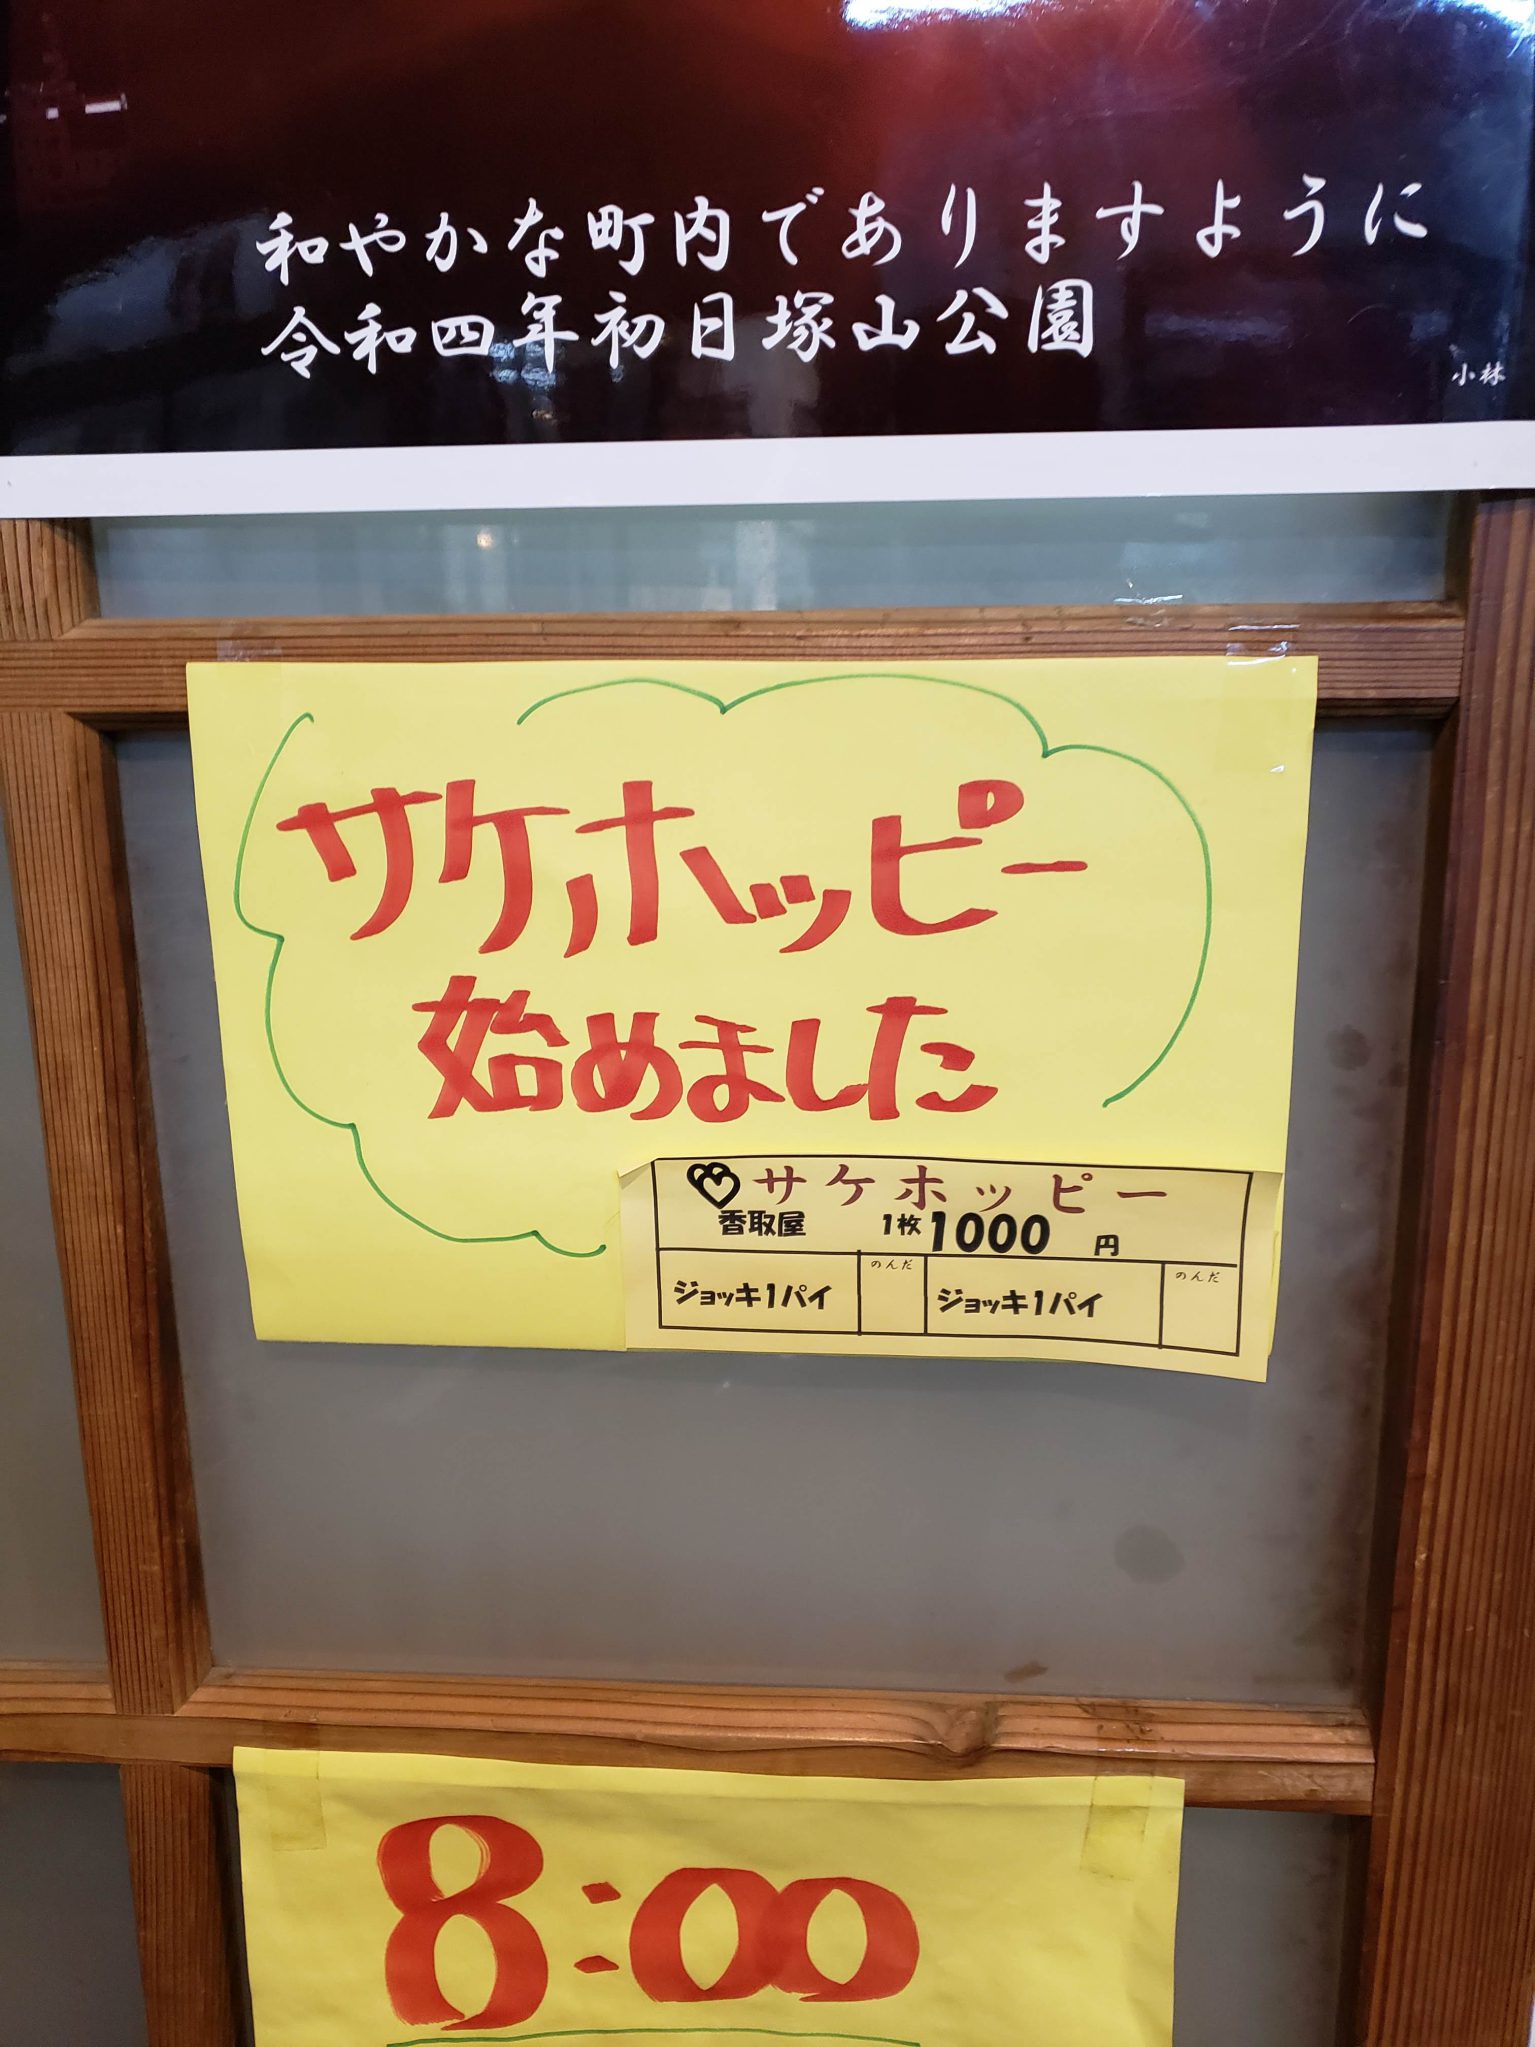 和やかな町内でありますように
令和四年初日塚山公園
小林
サケホッピー
始めました
サケホッピー
香取屋 1枚1000円
ジョッキ1パイ のんだ ジョッキ1パイ のんだ
8:00